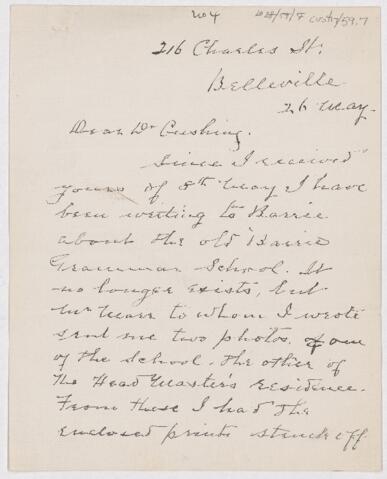 204
CUS417/59.7
216 Charles St.
Belleville
26 May.
Dear Dr Cushing.
Since I received
yours of 8th May I have
been writing to Barrie
about the old Barrie
Grammar School. It
no longer exists, but
Mr Marr to whom I wrote
sent me two photos, one
of the school. The other of
The Head Master's residence.
From these I had the
enclosed prints struck off